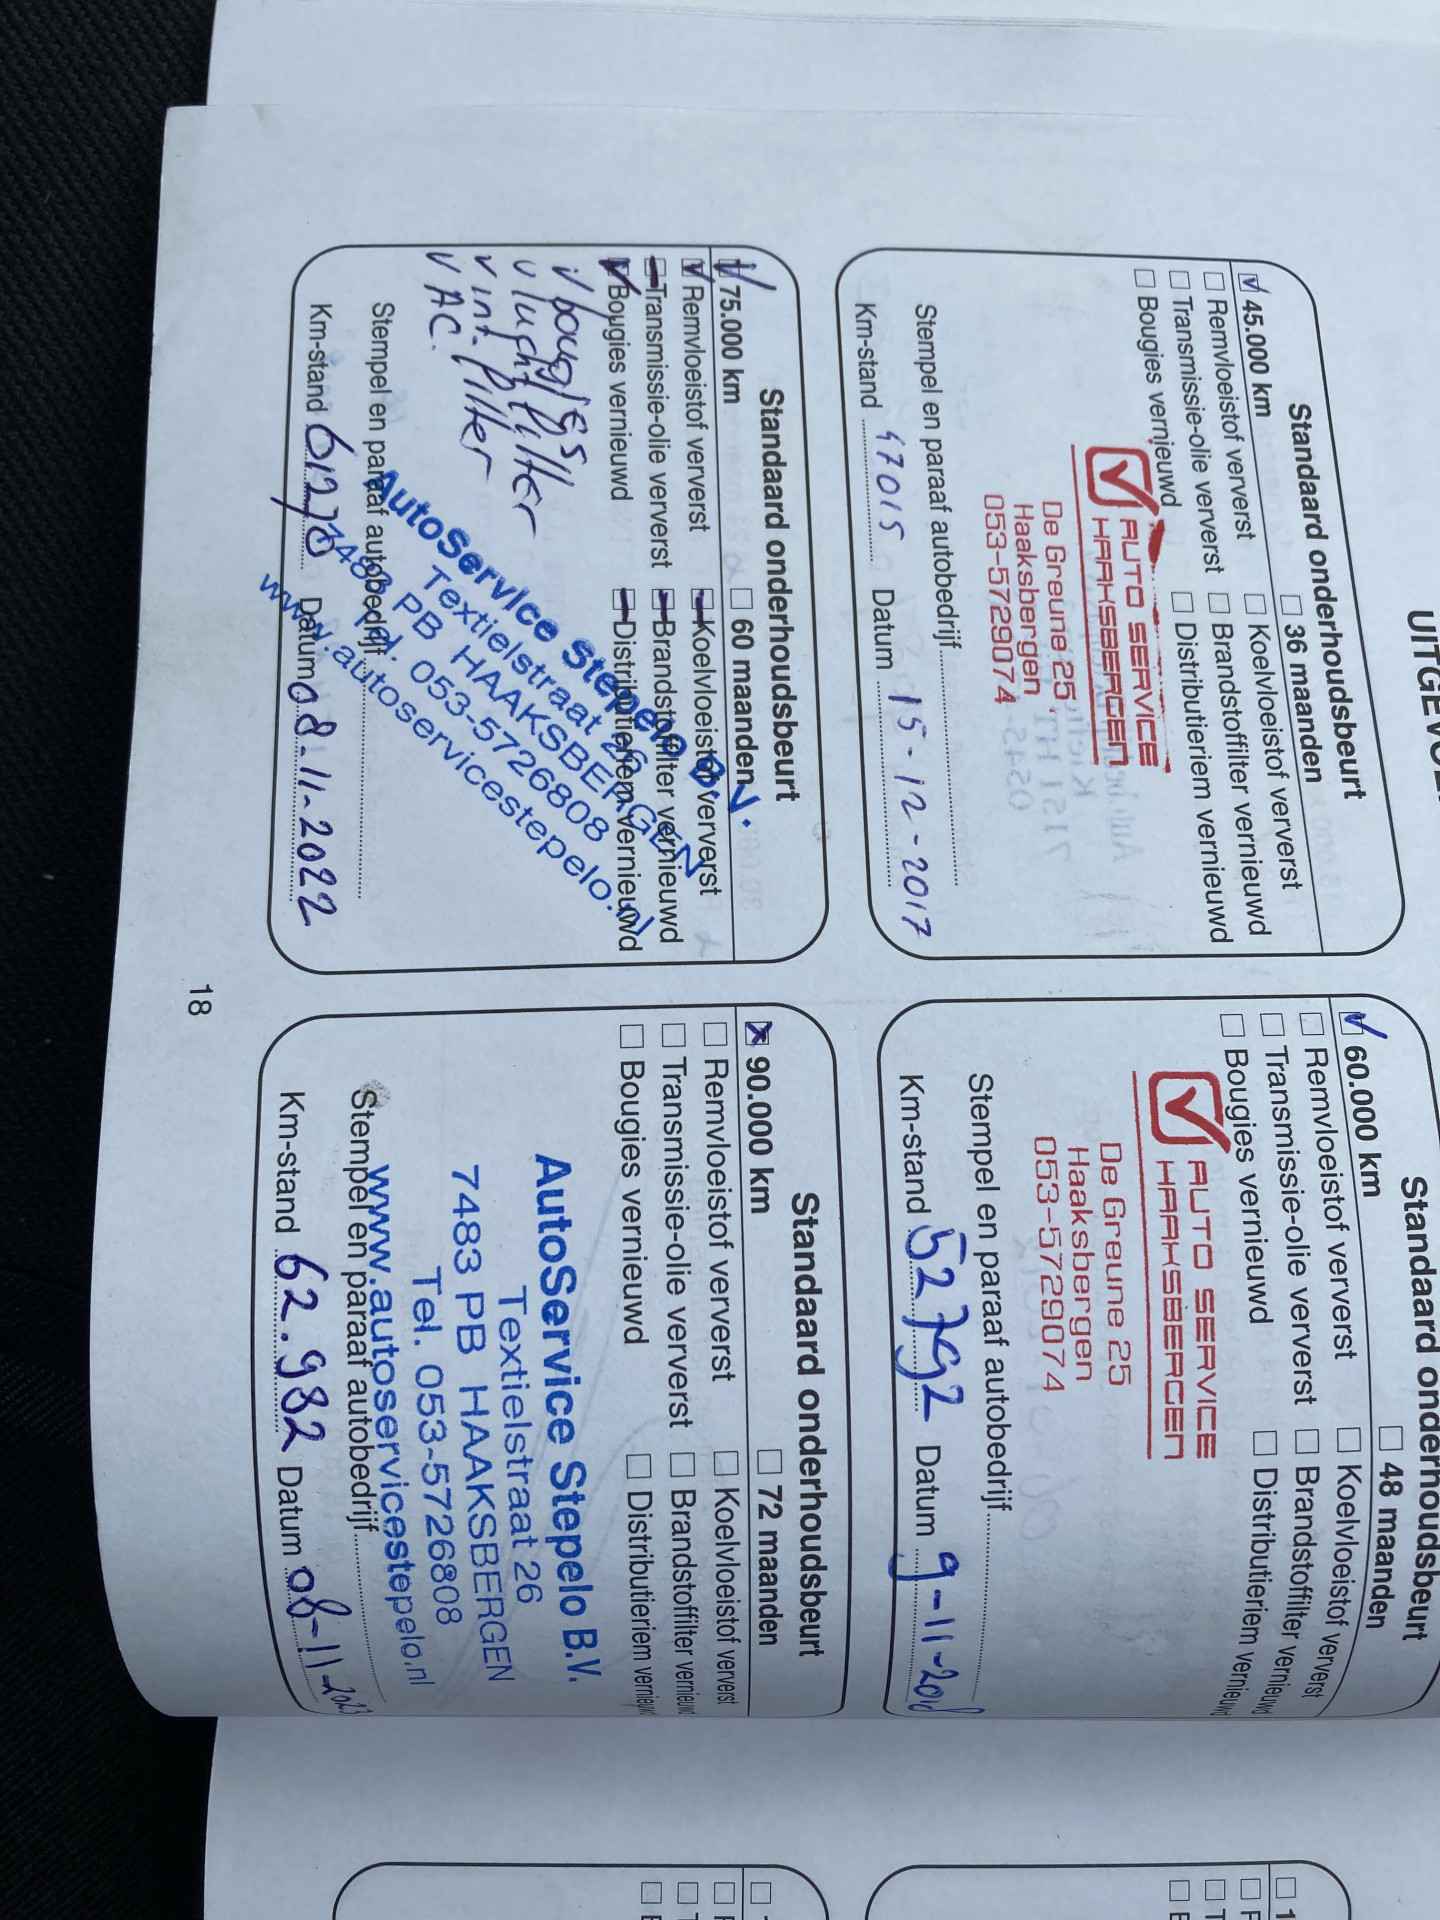 UITGEVOE
Standaard onderhoudsbeurt
45.000 km
36 maanden
Remvloeistof ververst
Koelvloeistof ververst
Transmissie-olie ververst
Brandstoffilter vernieuwd
Bougies vernieuwd
Distributieriem vernieuwd
AUTO SERVICE
HAAKSBERGEN
De Greune 25
Haaksbergen
053-5729074
Stempel en paraaf autobedrijf
Km-stand 47015 Datum 15-12-2017
Standaard onderhoudsbeurt
60.000 km
48 maanden
Remvloeistof ververst
Koelvloeistof ververst
Transmissie-olie ververst
Brandstoffilter vernieuwd
Bougies vernieuwd
Distributieriem vernieuwd
AUTO SERVICE
HAAKSBERGEN
De Greune 25
Haaksbergen
053-5729074
Stempel en paraaf autobedrijf
Km-stand 52792 Datum 9-11-2018
Standaard onderhoudsbeurt
75.000 km
60 maanden
Remvloeistof ververst
Koelvloeistof ververst
Transmissie-olie ververst
Brandstoffilter vernieuwd
Bougies vernieuwd
Distributieriem vernieuwd
v bougies!!
v luchtfilter
v int. filter
v AC.
AutoService Stepelo B.V.
Textielstraat 26
7483 PB HAAKSBERGEN
Tel. 053-5726808
www.autoservicestepelo.nl
Stempel en paraaf autobedrijf
Km-stand Datum 08-11-2022
Standaard onderhoudsbeurt
90.000 km
72 maanden
Remvloeistof ververst
Koelvloeistof ververst
Transmissie-olie ververst
Brandstoffilter vernieuw
Bougies vernieuwd
Distributieriem vernieuw
AutoService Stepelo B.V.
Textielstraat 26
7483 PB HAAKSBERGEN
Tel. 053-5726808
www.autoservicestepelo.nl
Stempel en paraaf autobedrijf
Km-stand 62.982 Datum 08-11-2023
18